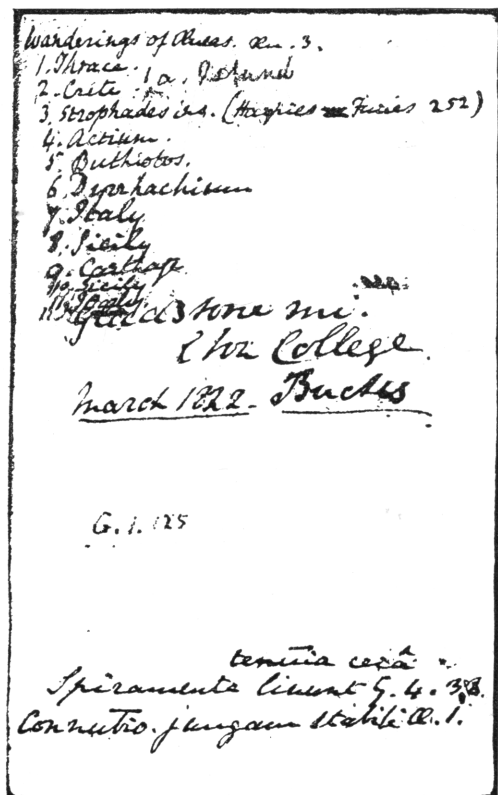 Wanderings of Æneas. Æn. 3.
1. Thrace.
2. Crete
3. Strophades ins. (Harpies Furies 252)
4. Actium.
5. Buthrotos.
6. Dyrrhachium
7. Italy
8. Sicily
9. Carthage
10. Sicily
11. Italy
Gladstone mi.
Eton College.
March 1822. Bucks
G. 1. 125
tenuia cerâ
Spiramenta linunt G. 4. 38.
Connubio. jungam stabili Æ. 1.